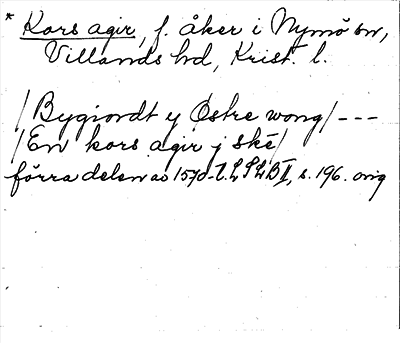 * Kors agir, f. åker i Nymö sn,
Villands hd, Krist. l.
/Bygiordt y Østre wong/ ---
/En kors agir j ské/
förra delen av 1570-t. L P L B II, s. 196. orig